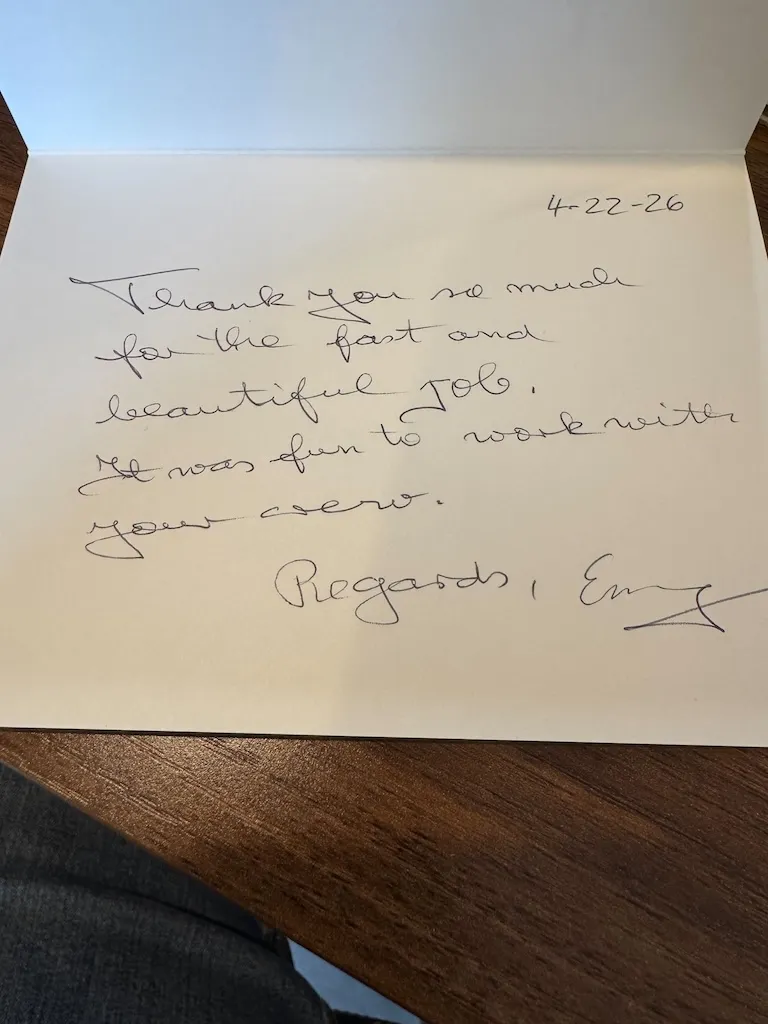 4-22-26
Thank you so much
for the fast and
beautiful job.
It was fun to work with
your crew.
Regards,